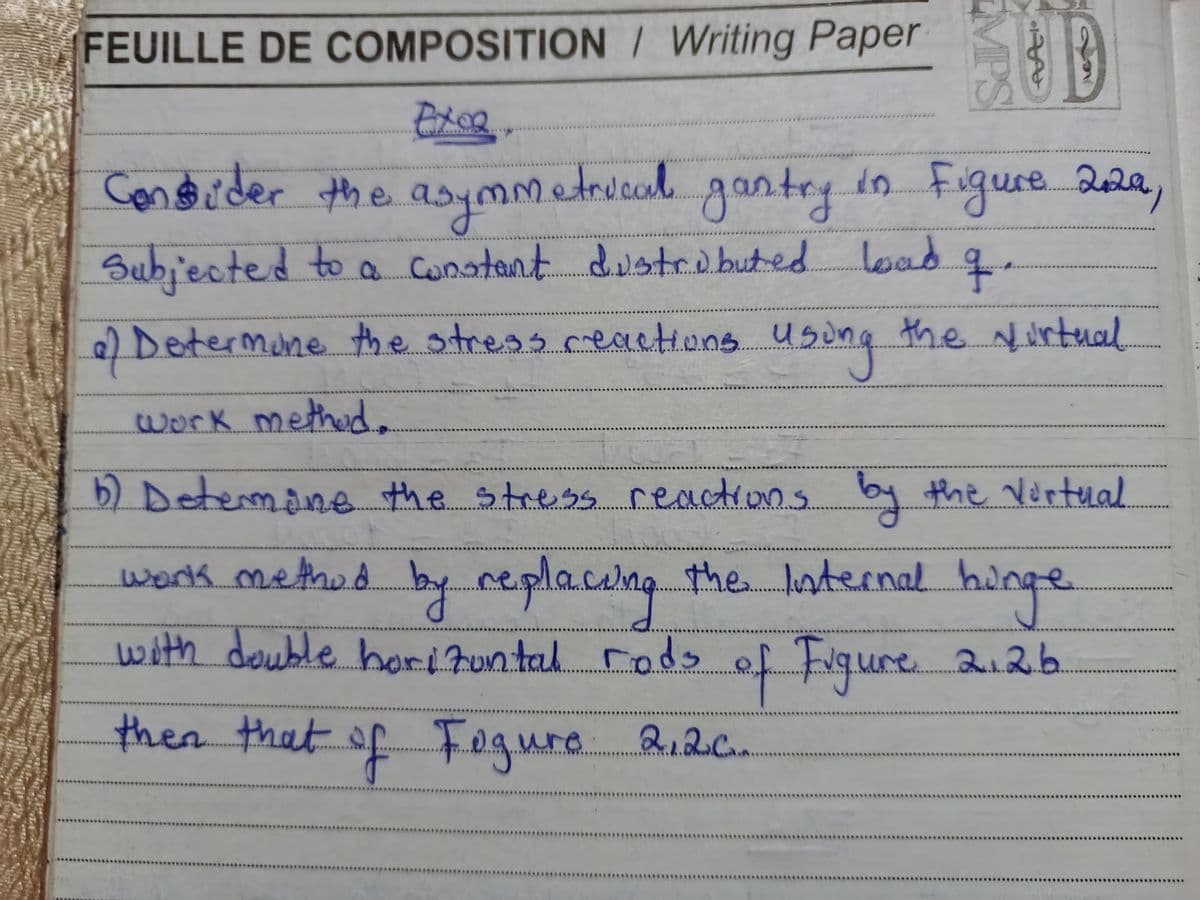 FEUILLE DE COMPOSITION / Writing Paper
Exo2.
Consider the asymmetrical gantry in Figure 2.2a,
Subjected to a constant distributed load q.
a) Determine the stress reactions using the virtual
work method.
b) Determine the stress reactions by the virtual
work method by replacing the Internal hinge
with double horizontal rods of Figure 2.2b
then that of Figure 2.2c.